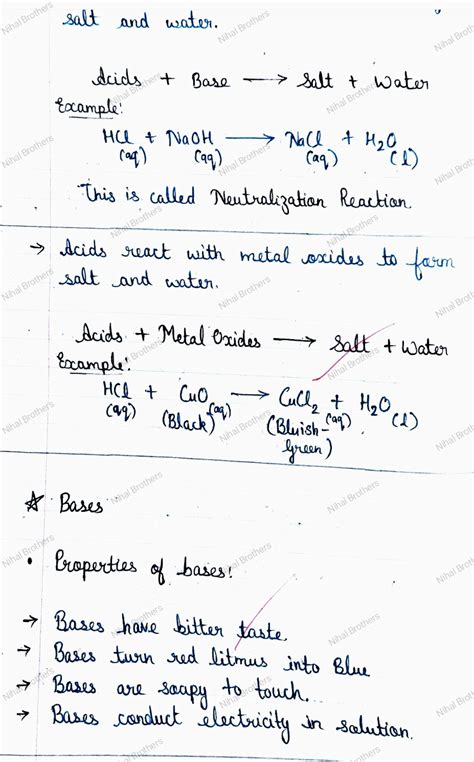 salt and water.
Acids + Base ⟶ Salt + Water
Example:
HCl + NaOH ⟶ NaCl + H2O
(aq) (aq) (aq) (l)
This is called Neutralization Reaction.
→ Acids react with metal oxides to form
salt and water.
Acids + Metal Oxides ⟶ Salt + Water
Example:
HCl + CuO ⟶ CuCl2 + H2O
(aq) (Black) (aq) (Bluish- (aq) (l)
green)
☆ Bases
• Properties of bases:
→ Bases have bitter taste.
→ Bases turn red litmus into Blue
→ Bases are soapy to touch.
→ Bases conduct electricity in solution.
Nihal Brothers